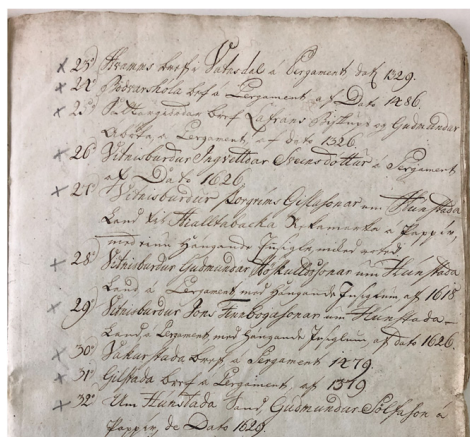 23° Hvamms bref i Vatnsdal á Pergament dat 1329.
24° Bödvarshola bref a Pergament af Dato 1486.
25° bref Lafrans Biskups og Gudmundar
Abota a Pergament, af dato 1326.
26° Vitnisburdur Ingvelldar Sveinsdottur á Pergament
af Dato 1626.
27° Vitnisburdur Þorgrims Gislasonar um Hunstada
Land til Hialltabacka a Papper,
med einu Hangande Insigle
28° Vitnisburdur Gudmundar Höskulldssonar um Hunstada
Land a Pergament med Hangande Insiglum af 1618
29° Vitnisburdur Jons Finnbogasonar um Hunstada-
Land a Pergament med Hangande Insiglum af dato 1626.
30° bref a Pergament 1479.
31° Gilstada bref a Pergament, af 1379
32° Um Hunstada Land, Gudmundar a
Papper, de Dato 1629.